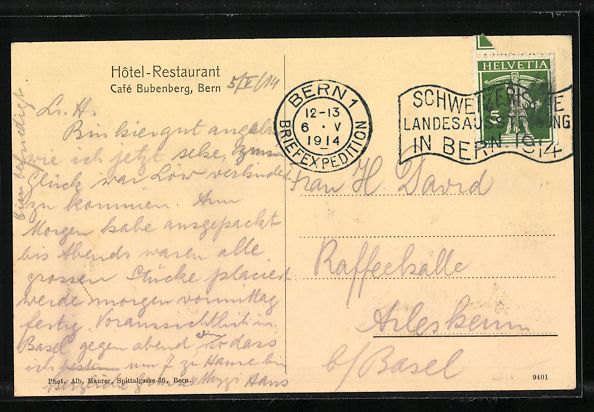 Hôtel-Restaurant
Café Bubenberg, Bern
5/V/14
L. H.
Bin hier gut
wie ich jetzt sehe, zum
Glück war Löw verhindert
zu kommen. Am
Morgen habe ausgepackt
bis Abends waren alle
grossen Stücke placiert
werde morgen vormittag
fertig. Voraussichtlich in
Basel gegen abend sodass
ich um 7 zu Hause bin
Hans
Phot. Alb. Maurer, Spitalgasse 36, Bern.
BERN 1
12-13
6 · V
1914
BRIEFEXPEDITION
HELVETIA
5
SCHWEIZERISCHE
LANDESAUSSTELLUNG
IN BERN. 1914
Frau H. David
Kaffeehalle
Arlesheim
b/Basel
9401